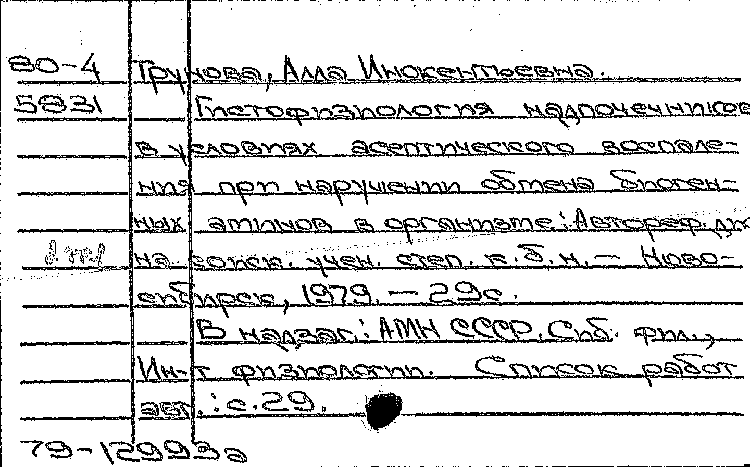 80-4 Трунова, Алла Инокентьевна.
5831 Гистофизиология надпочечников
в условиях асептического воспале-
ния при наручении обмена биоген-
ных аминов в организме: Автореф. дис
на соиск. учен. степ. к.б.н. — Ново-
сибирск, 1979. — 29с.
В надзаг.: АМН СССР. Сиб. фил.,
Ин-т физиологии. Список работ
авт.: с.29.
79-12993а